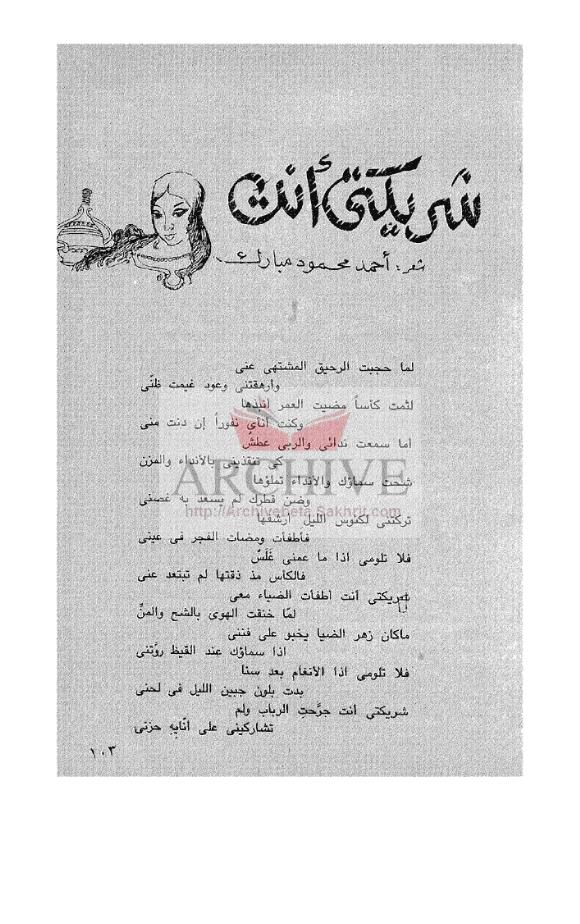 شريكتى أنت
شعر: أحمد محمود مبارك
لما حجبت الرحيق المشتهى عنى
وأرهقتنى وعود غيمت ظنّى
لثمت كأساً مضيت العمر أنبذها
وكنت أنأى نفوراً إن دنت منى
أما سمعت ندائى والربى عطش
كى تنقذينى بالأنداء والمزن
شحت سماؤك والأنداء تملؤها
وضن قطرك لم يسعد به غصنى
تركتنى لكئوس الليل أرشفها
فأطفأت ومضات الفجر فى عينى
فلا تلومى اذا ما عمنى غَلَسٌ
فالكأس مذ ذقتها لم تبتعد عنى
شريكتى أنت أطفأت الضياء معى
لمّا خنقت الهوى بالشح والمنِّ
ماكان زهر الضيا يخبو على فننى
اذا سماؤك عند القيظ روَّتنى
فلا تلومى اذا الأنغام بعد سنا
بدت بلون جبين الليل فى لحنى
شريكتى أنت جرَّحتِ الرباب ولم
تشاركينى على أنّاتِهِ حزنى
١٠٣
ARCHIVE
http://Archivebeta.Sakhrit.com